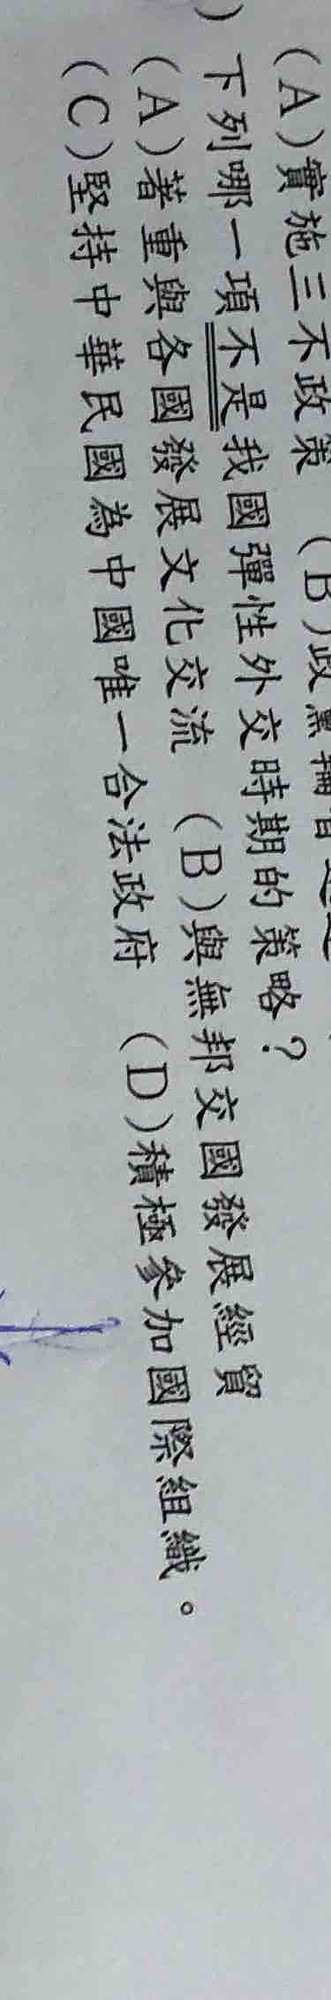 (A)實施三不政策 (B)政黨輪替
)下列哪一項不是我國彈性外交時期的策略？
(A)著重與各國發展文化交流 (B)與無邦交國發展經貿
(C)堅持中華民國為中國唯一合法政府 (D)積極參加國際組織。